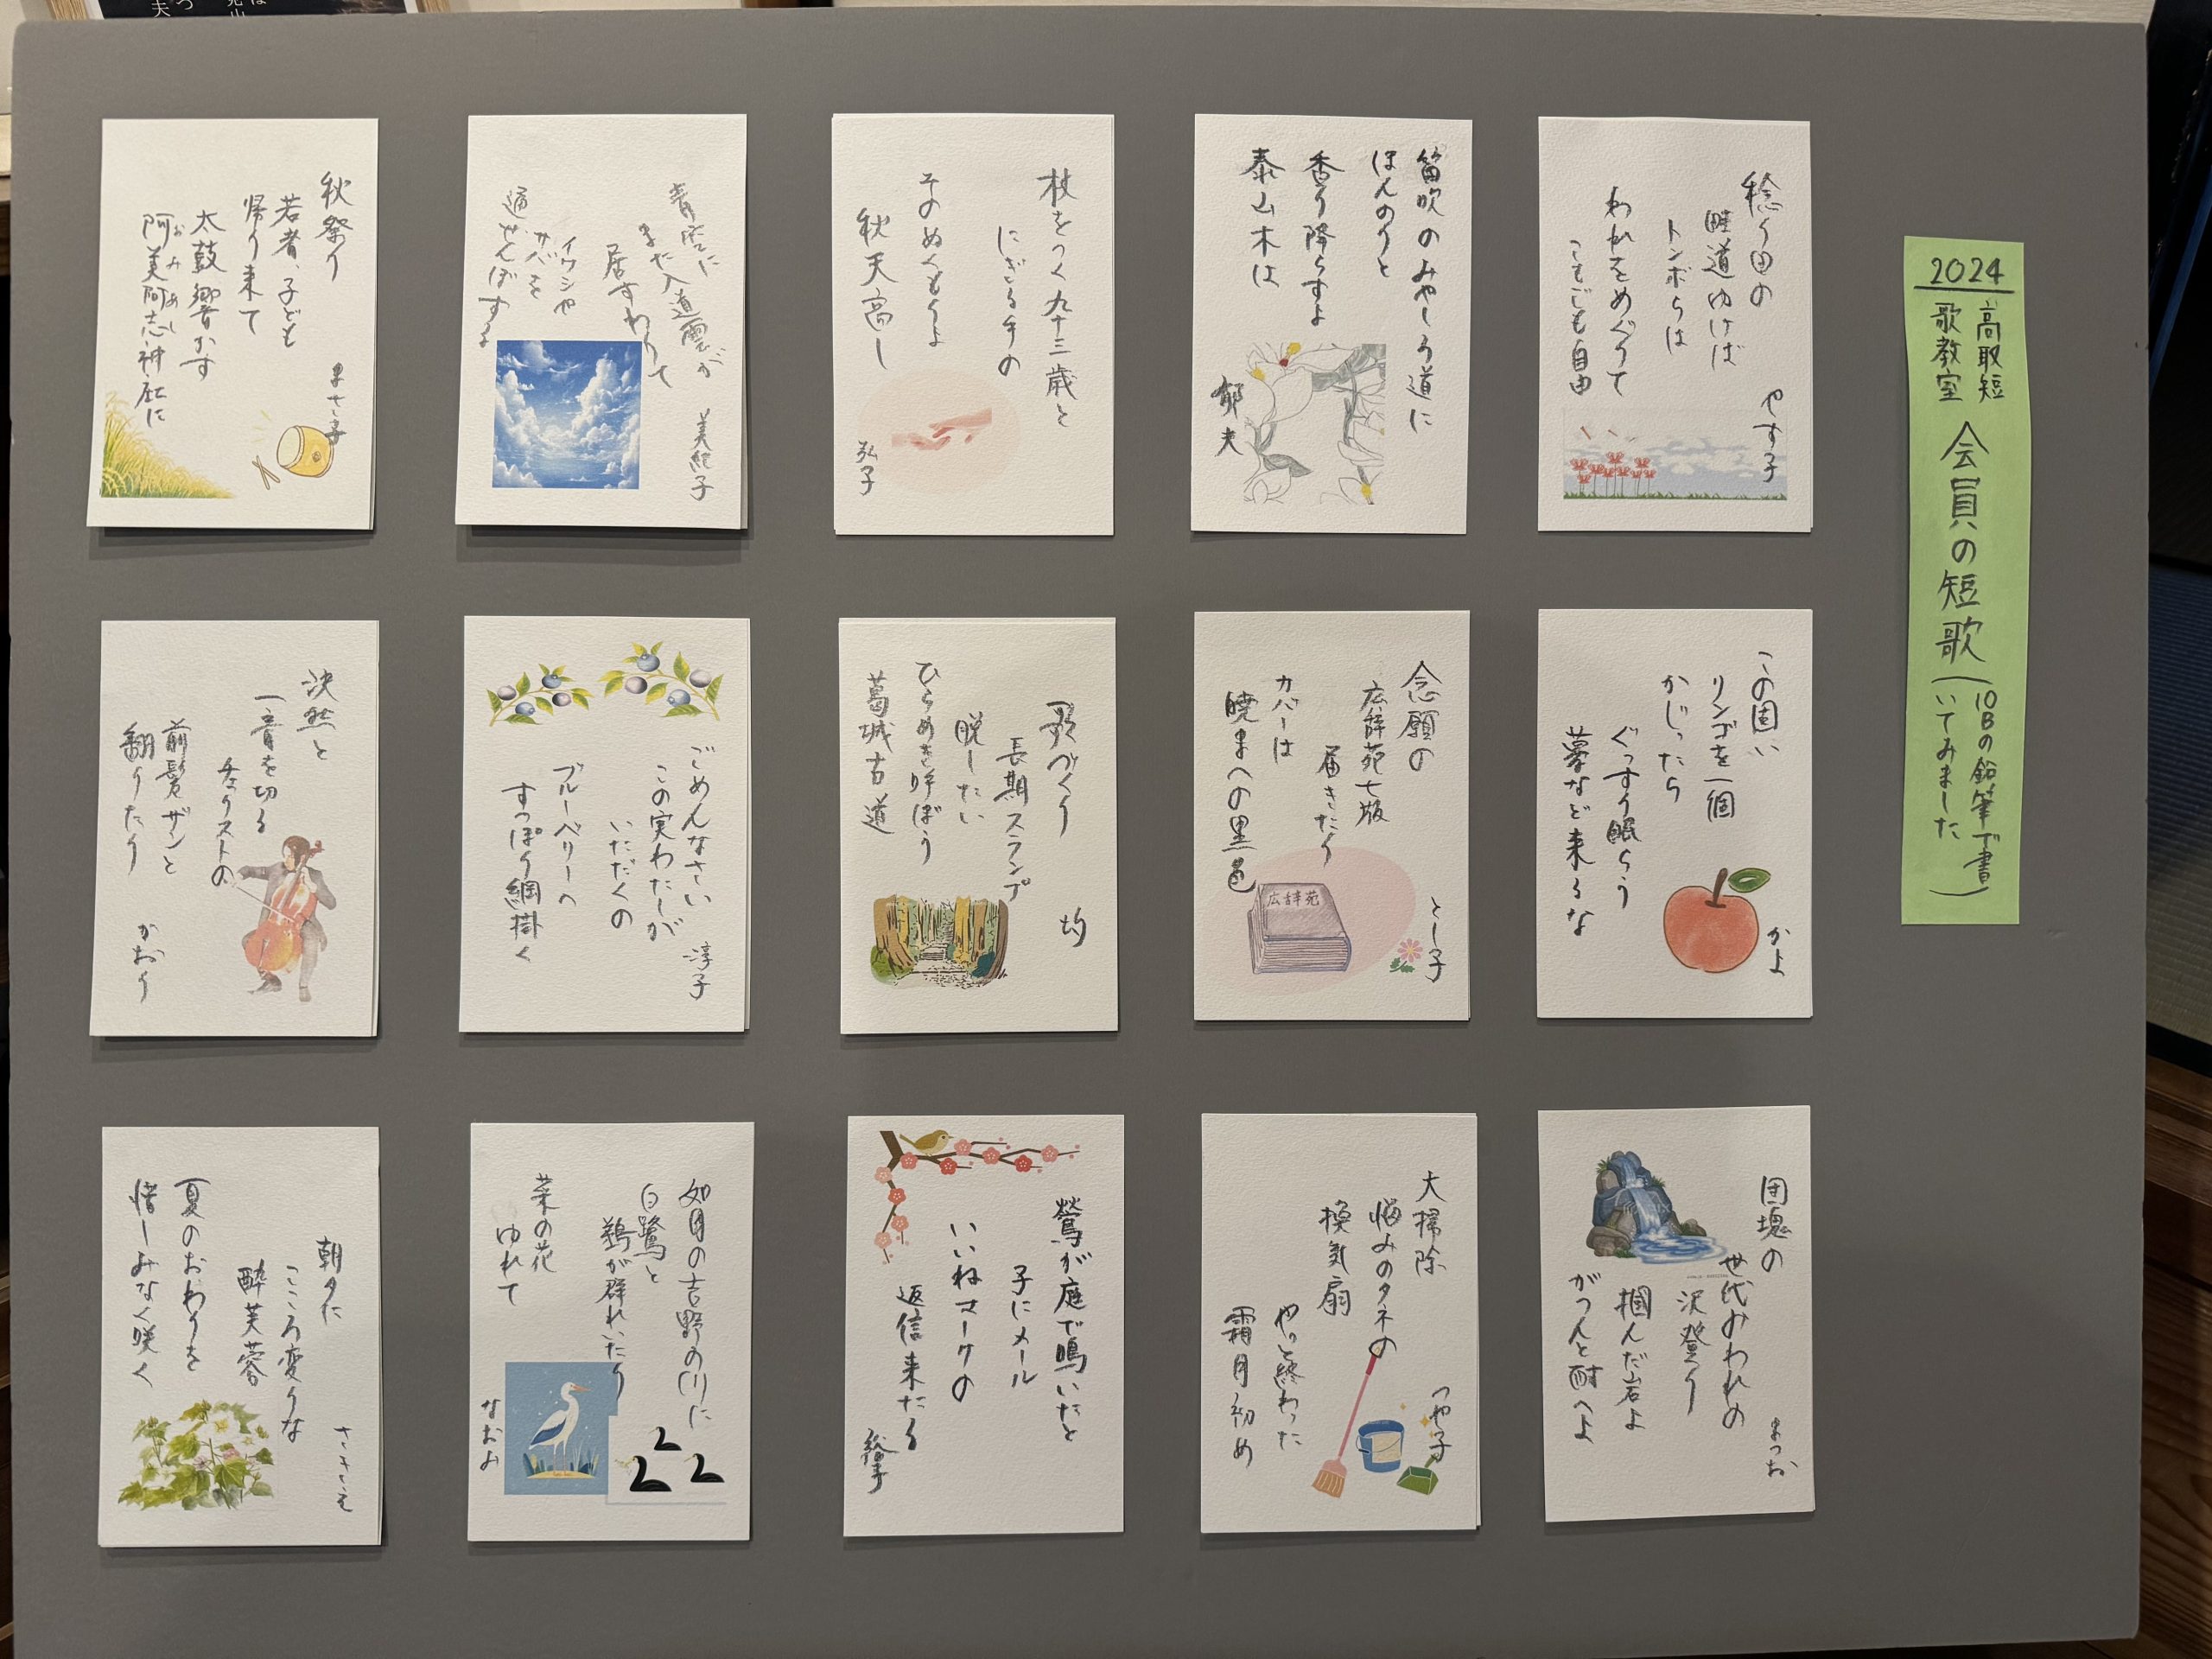 2024
高取短
歌教室
会員の短歌
(10Bの鉛筆で書
いてみました)
稔り田の
畦道ゆけば
トンボらは
われをめぐりて
こもごも自由
やす子
笛吹のみやしろ道に
ほんのりと
香り降らすよ
泰山木は
郁夫
杖をつく九十三歳と
にぎる手の
そのぬくもりよ
秋天高し
弘子
青空に
また入道雲が
居すわりて
イワシや
サバを
通せんぼする
美紀子
秋祭り
若者、子ども
帰り来て
太鼓響かす
阿美阿志神社に
おみあし
まさ子
この固い
リンゴを一個
かじったら
ぐっすり眠ろう
夢など来るな
かよ
念願の
広辞苑七版
届きたり
カバーは
暁まへの黒色
とし子
広辞苑
歌づくり
長期スランプ
脱したい
ひらめき呼ぼう
葛城古道
均
ごめんなさい
この実わたしが
いただくの
ブルーベリーへ
すっぽり網掛く
淳子
決然と
一音を切る
チェリストの
前髪ザンと
翻りたり
かおり
団塊の
世代みわれの
沢登り
掴んだ岩よ
がつんと耐へよ
まつお
大掃除
悩みのタネの
換気扇
やっと終わった
霜月初め
つや子
鶯が庭で鳴いたと
子にメール
いいねマークの
返信来たる
裕子
如月の吉野の川に
白鷺と
鵜が群れいたり
菜の花
ゆれて
なおみ
朝夕に
こころ変りな
酔芙蓉
夏のおわりを
惜しみなく咲く
さきえ